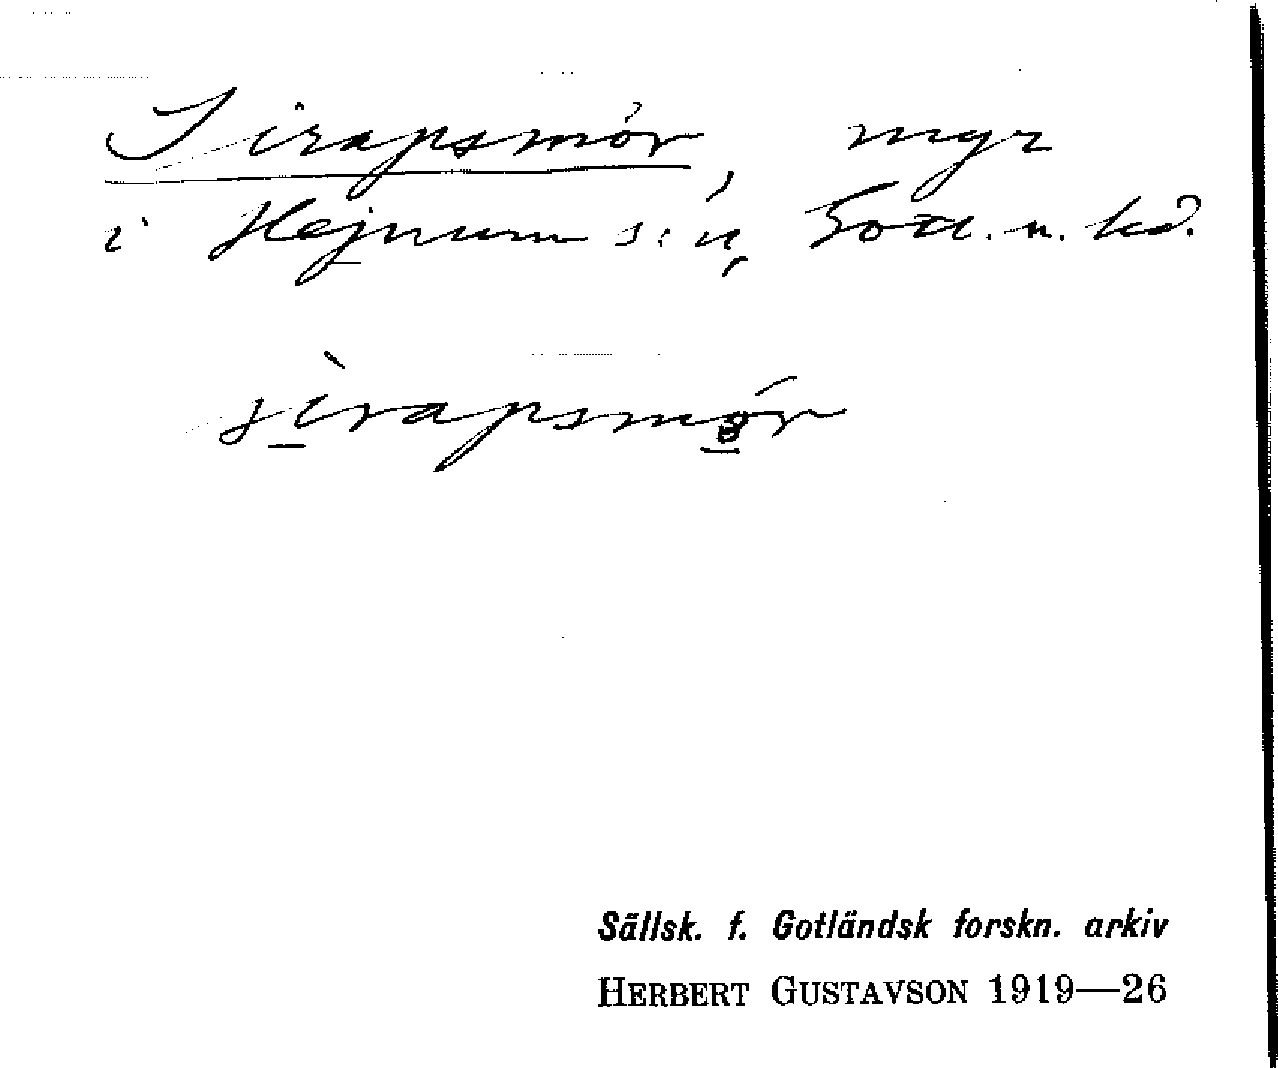 Sirapsmór, mgr
i Hejnum s:n, Gotl. n. hd.
sìrapsmór
Sällsk. f. Gotländsk forskn. arkiv
HERBERT GUSTAVSON 1919—26